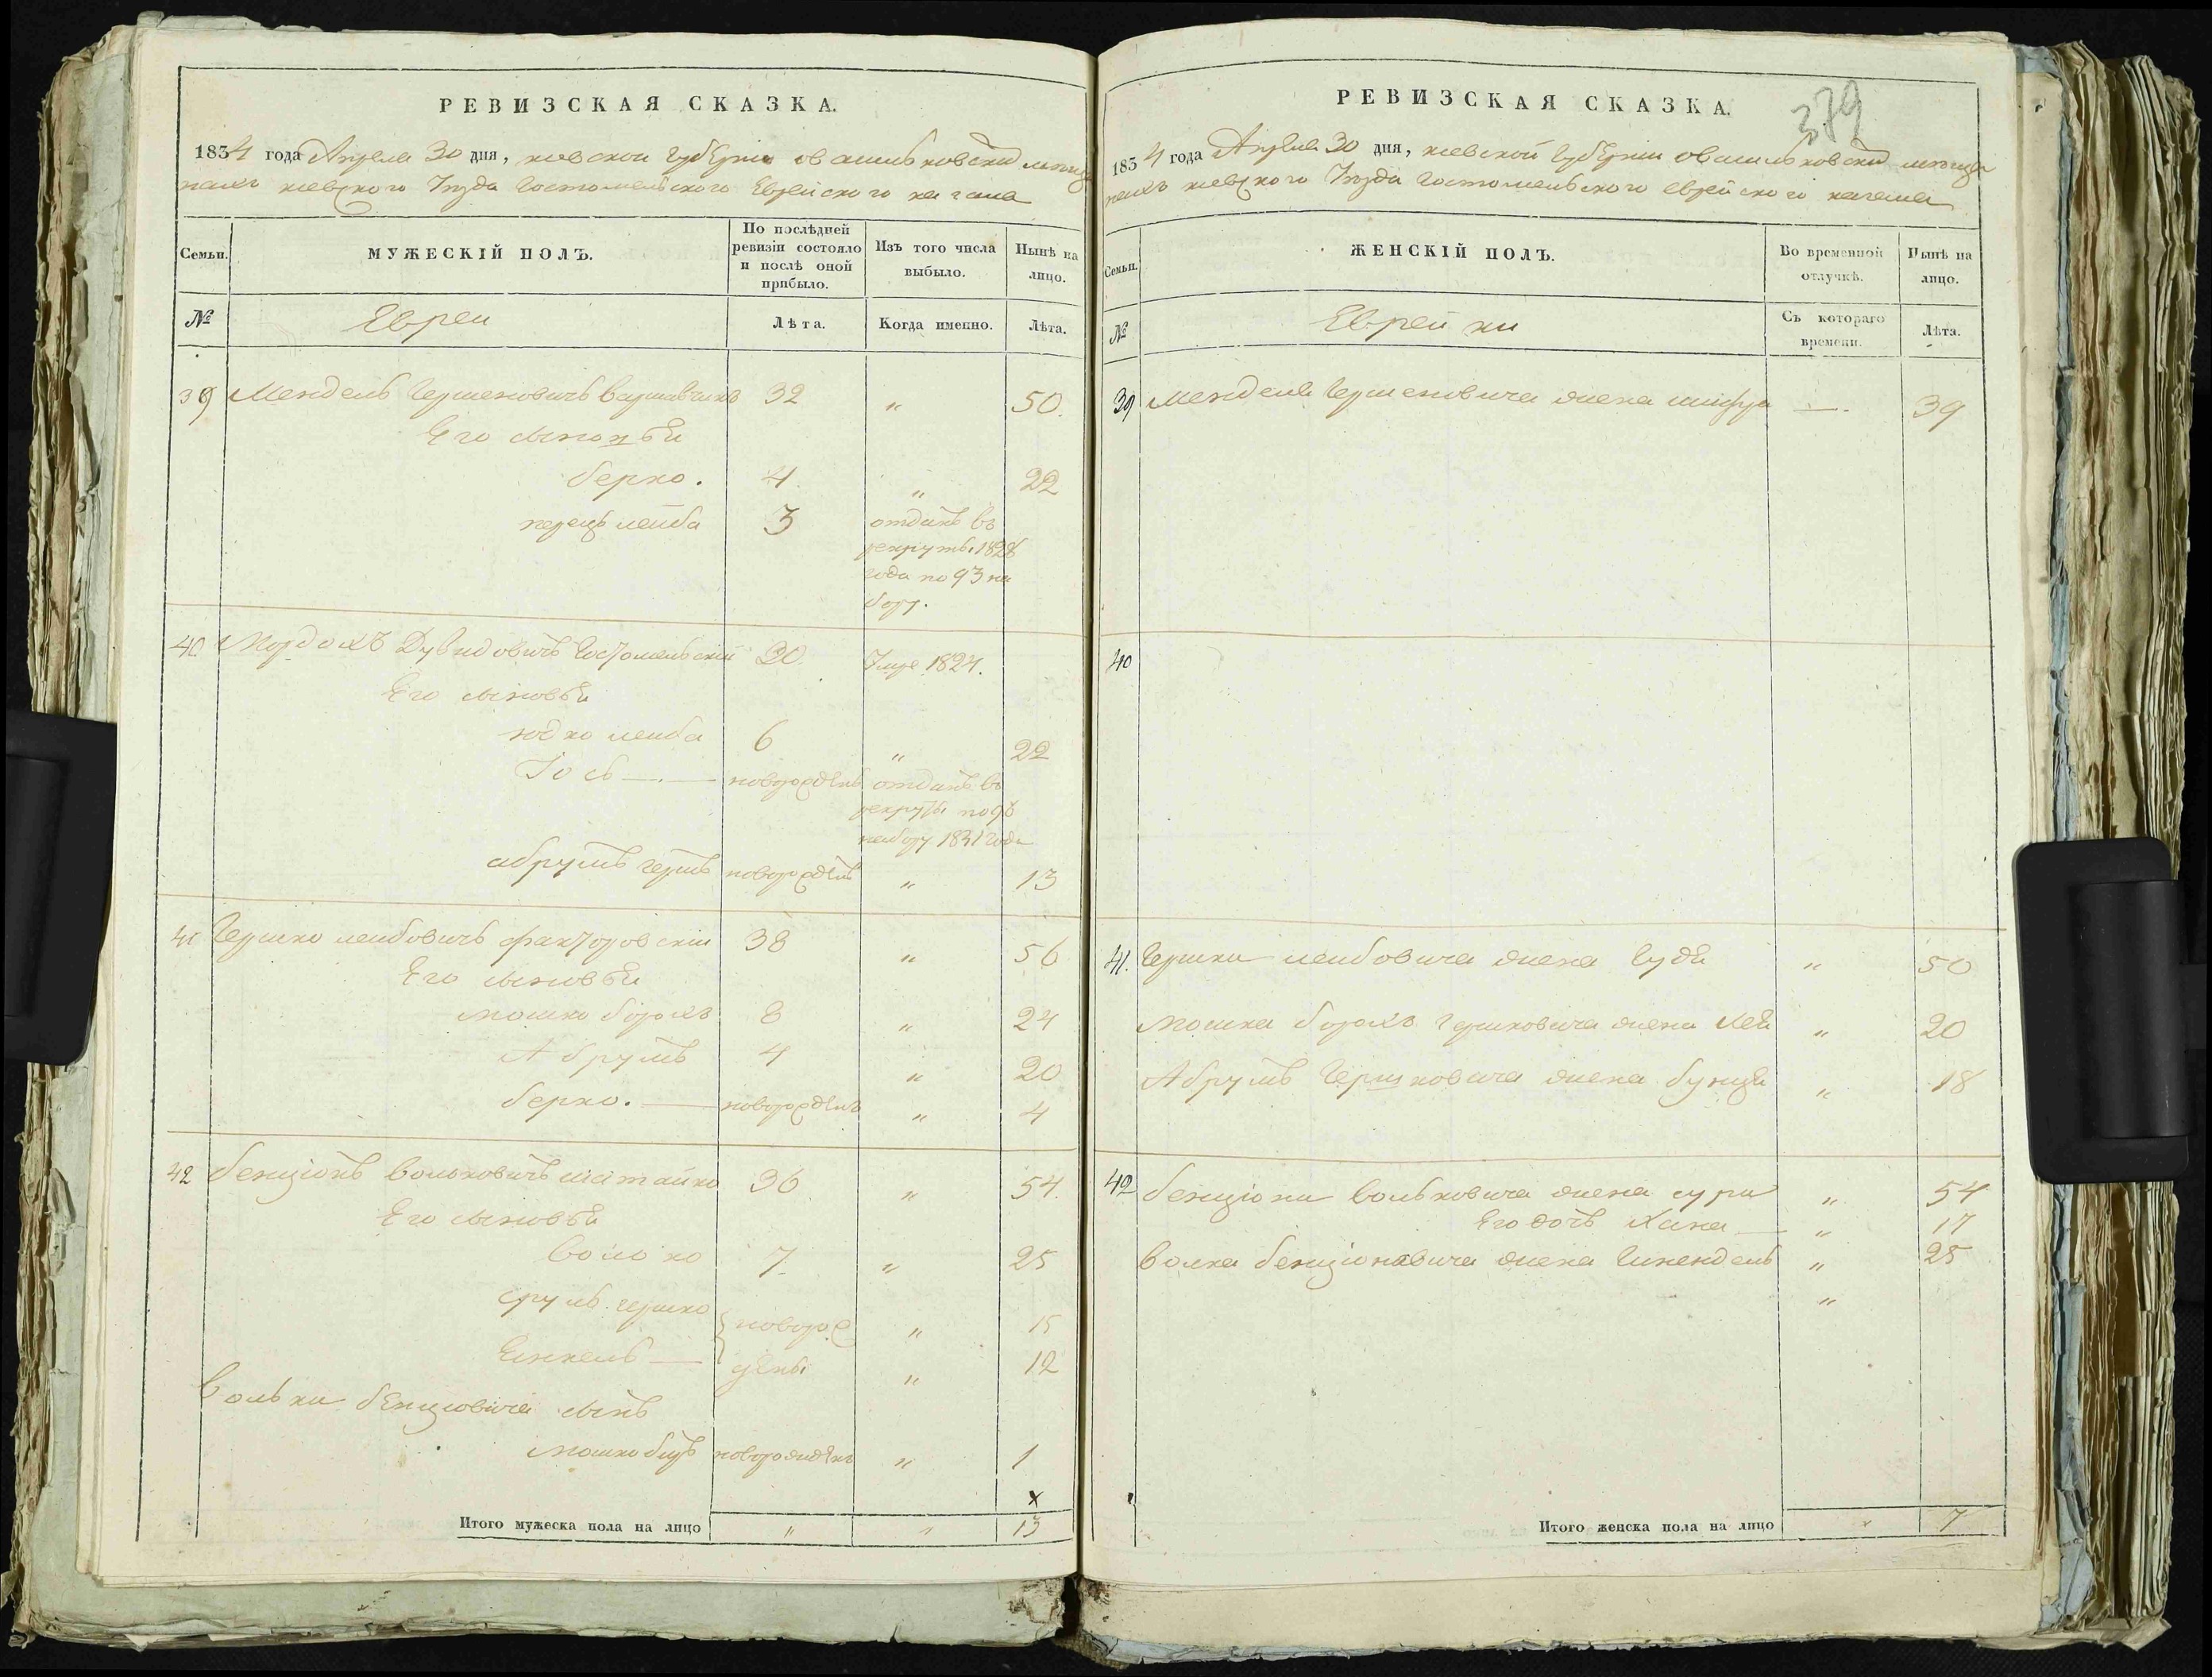 РЕВИЗСКАЯ СКАЗКА.
1834 года Апреля 30 дня, киевской губернии о васильковский мещанахъ киевского уезда Гостомельского Еврейского кагала
Семьи.
МУЖЕСКІЙ ПОЛЪ.
По послѣдней ревизіи состояло и послѣ оной прибыло.
Изъ того числа выбыло.
Нынѣ на лицо.
№ Евреи Лѣта. Когда именно. Лѣта.
39 Мендель Гершковичъ Варшавчикъ 32 " 50.
Его сыновьи
берко. 4 " 22
перецъ лейба 3 отданъ въ
рекруты 1828
года по 93 на
бору.
40 Мордохъ Дувидовичъ Гостомельский 20 Умре 1824.
Его сыновьи
юдко лейба 6 " 22
Іось новорожденъ отданъ въ
рекруты по 96
набору 1831 года
абрумъ гершъ новорожденъ " 13
41 Гершко лейбовичъ факторовский 38 " 56
Его сыновьи
мошко борохъ 8 " 24
Абрумъ 4 " 20
берко. новорожденъ " 4
42 бенціонъ вольковичъ 36 " 54.
Его сыновьи
волько 7. " 25
сруль гершко " 15
новорождены
Еинкель " 12
Вольки бенциовича сынъ
мошко новорожденъ " 1
х
Итого мужеска пола на лицо " " 13
379
РЕВИЗСКАЯ СКАЗКА.
1834 года Апреля 30 дня, киевской губернии о васильковский мещанахъ киевского уезда Гостомельского еврейского кагала
Семьи.
ЖЕНСКІЙ ПОЛЪ.
Во временной отлучкѣ.
Нынѣ на лицо.
№ Еврейки Съ котораго времени. Лѣта.
39 Менделя Гершеновича жена шифра — 39
40
41. Гершки лейбовича жена Гудя " 50
мошки борохъ гершковича жена хея " 20
Абрумъ Гершковича жена бунця " 18
42 бенціони вольковича жена сура " 54
Его дочь хана " 17
волка бенционовича жена Шнендель " 25
"
Итого женска пола на лицо " 7